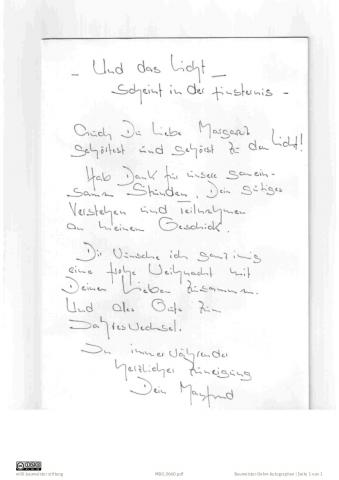 - Und das Licht -
scheint in der Finsternis -
Auch Du liebe Margaret
gehörtest und gehörst zu dem Licht!
Hab Dank für unsere gemein-
samen Stunden, Dein gütiges
Verstehen und Teilnehmen
an meinem Geschick.
Dir wünsche ich ganz innig
eine frohe Weihnacht mit
Deinen Lieben zusammen.
Und alles Gute zum
Jahreswechsel.
In immerwährender
herzlicher Zuneigung
Dein Manfred
willi baumeister stiftung
Baumeister-Dehm-Autographen | Seite 1 von 1